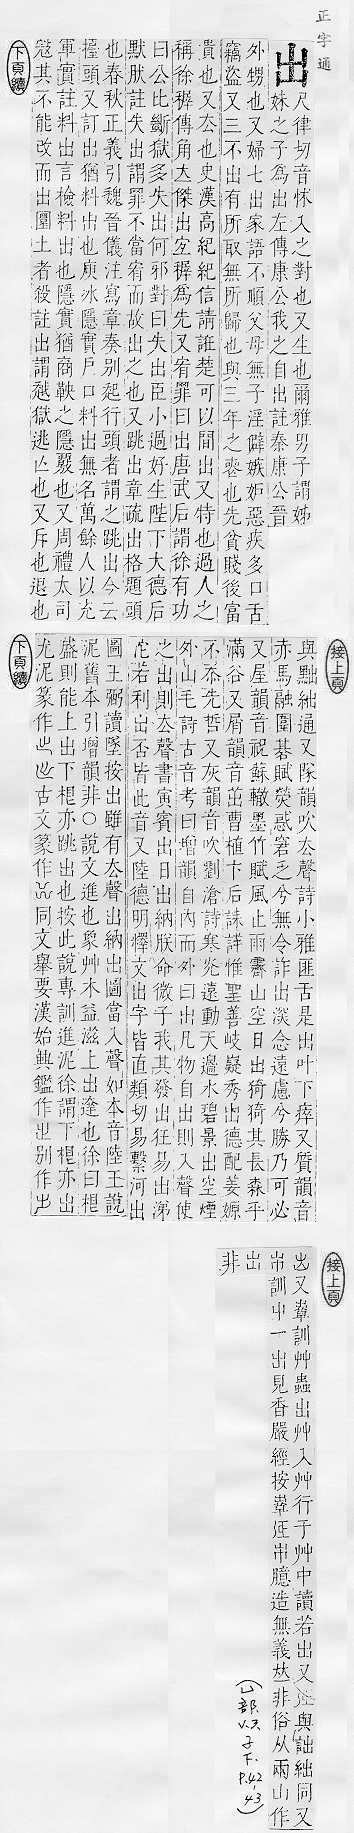 正字通
出
尺律切音怵入之對也又生也爾雅男子謂姊
妹之子爲出左傳康公我之自出註秦康公晉
外甥也又婦七出家語不順父母無子淫僻嫉妬惡疾多口舌
竊盜又三不出有所取無所歸也與三年之喪也先貧賤後富
貴也又去也史漢高紀紀信請誑楚可以閒出又特也過人之
稱徐穉傳角立傑出宜穉爲先又宥罪曰出唐武后謂徐有功
曰公比斷獄多失出何邪對曰失出臣小過好生陛下大德后
默肰註失出謂罪不當宥而故出之也又跳出章疏出格題頭
也春秋正義引魏晉儀注寫章奏別起行頭者謂之跳出今云
擡頭又訂出猶料出也庾冰隱實戶口料出無名萬餘人以充
軍實註料出言檢料出也隱實猶商鞅之隱覈也又周禮太司
寇其不能改而出圜土者殺註出謂越獄逃亾也又斥也退也
下頁續
接上頁
與黜絀通又隊韻吹去聲詩小雅匪舌是出叶下瘁又質韻音
赤馬融圍碁賦熒惑窘乏兮無令詐出淡念遠慮兮勝乃可必
又屋韻音祝蘇轍墨竹賦風止雨霽山空日出猗猗其長森乎
滿谷又屑韻音茁曹植卞后誄詳惟聖善岐嶷秀出德配姜嫄
不忝先哲又灰韻音吹劉滄詩寒光遠動天邊水碧景出空煙
外山毛詩古音考曰增韻自內而外曰出凡物自出則入聲使
之出則去聲書寅賓出日出納朕命微子我其發出狂易出涕
沱若利出否皆此音又陸德明釋文出字皆直類切易繫河出
圖王弼讀墜按出雖有去聲出納出圖當入聲如本音陸王說
泥舊本引增韻非○說文進也象艸木益滋上出達也徐曰根
盛則能上出下根亦跳出也按此說專訓進泥徐謂下根亦出
尤泥篆作𡳿古文篆作同文舉要漢始興鑑作别作
下頁續
接上頁
又訓艸蟲出艸入艸行于艸中讀若出又與詘絀同又
訓中一出見香嚴經按臆造無義𠀤非俗从兩山作
出非
(凵部 以天 子下 P.42-43)